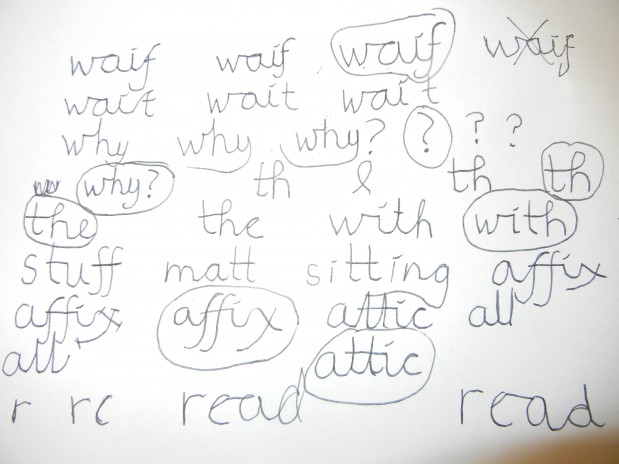 waif waif waif waif
wait wait wait
why why why? ? ? ?
why? th l th th
the the with with
stuff matt sitting affix
affix affix attic all
all attic
r re read read